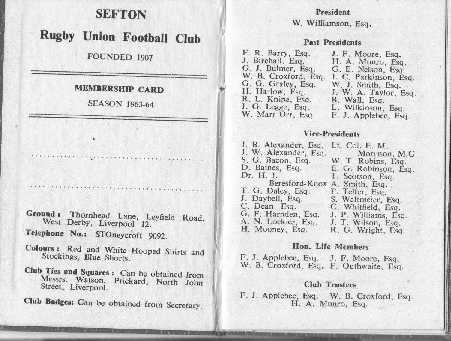 SEFTON
Rugby Union Football Club
FOUNDED 1907
MEMBERSHIP CARD
SEASON 1963-64
Ground : Thornhead Lane, Leyfield Road,
West Derby, Liverpool 12.
Telephone No.: STOneycroft 9092.
Colours : Red and White Hooped Shirts and
Stockings, Blue Shorts.
Club Ties and Squares : Can be obtained from
Messrs. Watson, Prickard, North John
Street, Liverpool.
Club Badges: Can be obtained from Secretary.
President
W. Williamson, Esq.
Past Presidents
F. R. Barry, Esq. J. F. Moore, Esq.
J. Birchall, Esq. H. A. Munro, Esq.
G. J. Bulmer, Esq. G. E. Nelson, Esq.
W. B. Croxford, Esq. J. C. Parkinson, Esq.
G. G. Esq. W. J. Smith, Esq.
H. Harlow, Esq. J. W. A. Taylor, Esq.
R. L. Knipe, Esq. R. Wall, Esq.
J. G. Legge, Esq. L. Wilkinson, Esq.
W. Marr Orr, Esq. F. J. Applebee, Esq.
Vice-Presidents
J. B. Alexander, Esq. Lt. Col. E. M.
J. W. Alexander, Esq. Morrison, M.C
S. G. Bacon, Esq. W. T. Robins, Esq.
D. Baines, Esq. E. G. Robinson, Esq.
Dr. H. J. T. Scotson, Esq.
Beresford-Knox A. Smith, Esq.
T. G. Daley, Esq. F. Telfer, Esq.
J. Daybell, Esq. S. Esq.
C. Dean, Esq. C. Whitfield, Esq.
G. F. Harnden, Esq. J. P. Williams, Esq.
A. N. Esq. J. T. Wilson, Esq.
H. Mooney, Esq. R. G. Wright, Esq
Hon. Life Members
F. J. Applebee, Esq. J. F. Moore, Esq.
W. B. Croxford, Esq. F. Outhwaite, Esq.
Club Trustees
F. J. Applebee, Esq. W. B. Croxford, Esq.
H. A. Munro, Esq.